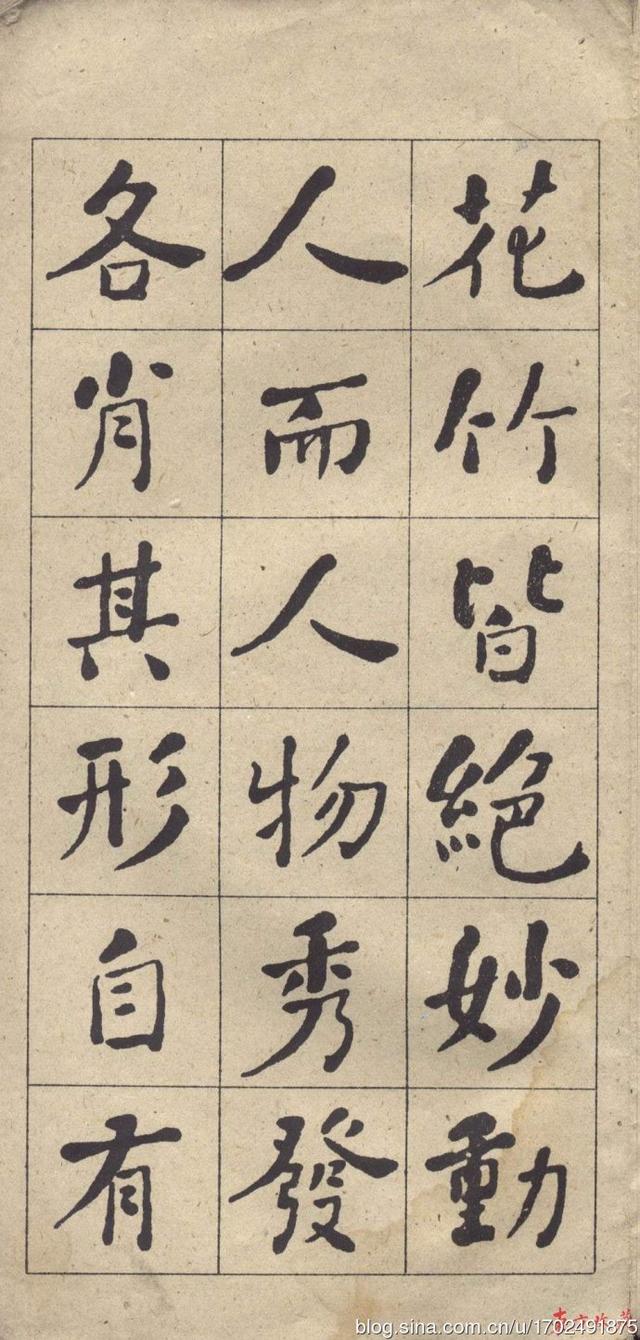 花竹皆絕妙動
人而人物秀發
各肖其形自有
blog.sina.com.cn/u/1702491875